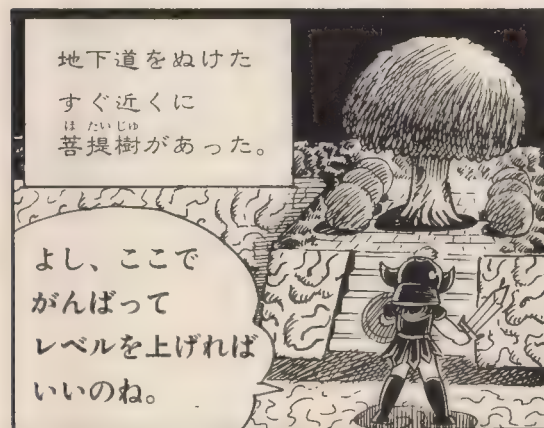 地下道をぬけた
すぐ近くに
ほたいじゅ
菩提樹があった。
よし、ここで
がんばって
レベルを上げれば
いいのね。